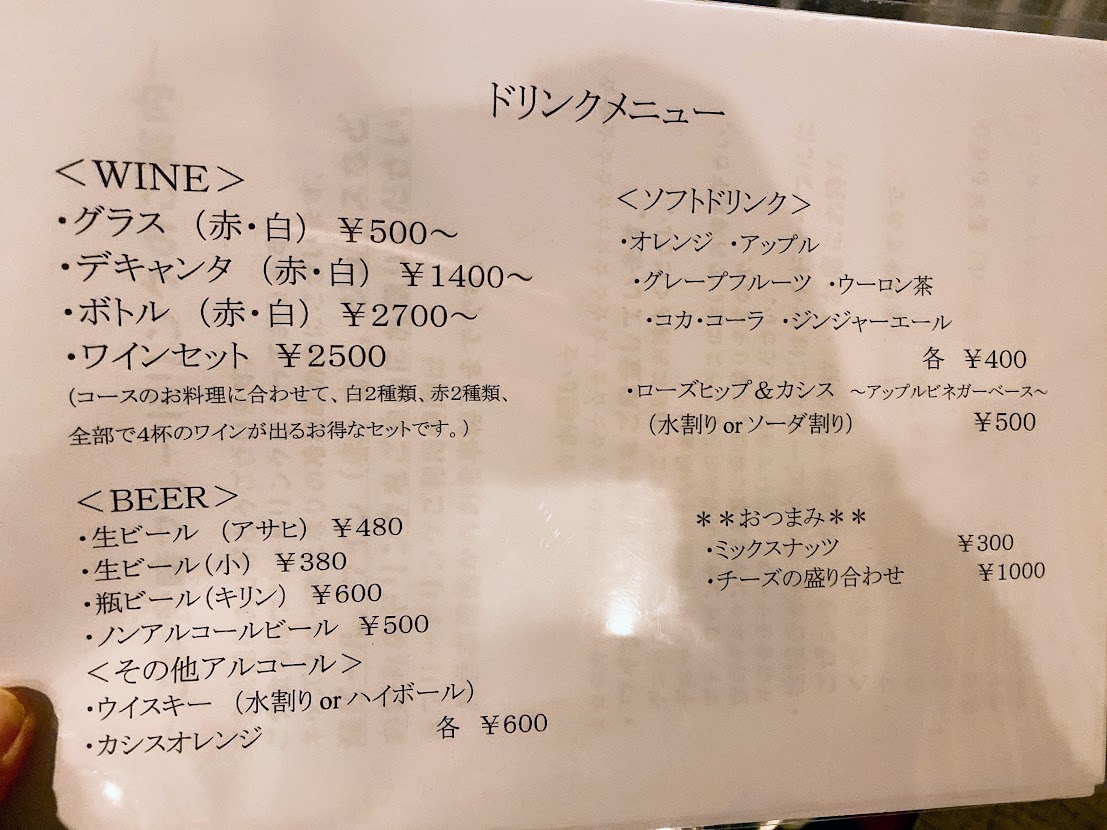 ドリンクメニュー
＜WINE＞
・グラス （赤・白） ￥500～
・デキャンタ （赤・白） ￥1400～
・ボトル （赤・白） ￥2700～
・ワインセット ￥2500
(コースのお料理に合わせて、白2種類、赤2種類、
全部で4杯のワインが出るお得なセットです。)
＜BEER＞
・生ビール （アサヒ） ￥480
・生ビール（小） ￥380
・瓶ビール（キリン） ￥600
・ノンアルコールビール ￥500
＜その他アルコール＞
・ウイスキー （水割り or ハイボール）
・カシスオレンジ 各 ￥600
＜ソフトドリンク＞
・オレンジ ・アップル
・グレープフルーツ ・ウーロン茶
・コカ・コーラ ・ジンジャーエール
各 ￥400
・ローズヒップ＆カシス ～アップルビネガーベース～
（水割り or ソーダ割り） ￥500
＊＊おつまみ＊＊
・ミックスナッツ ￥300
・チーズの盛り合わせ ￥1000